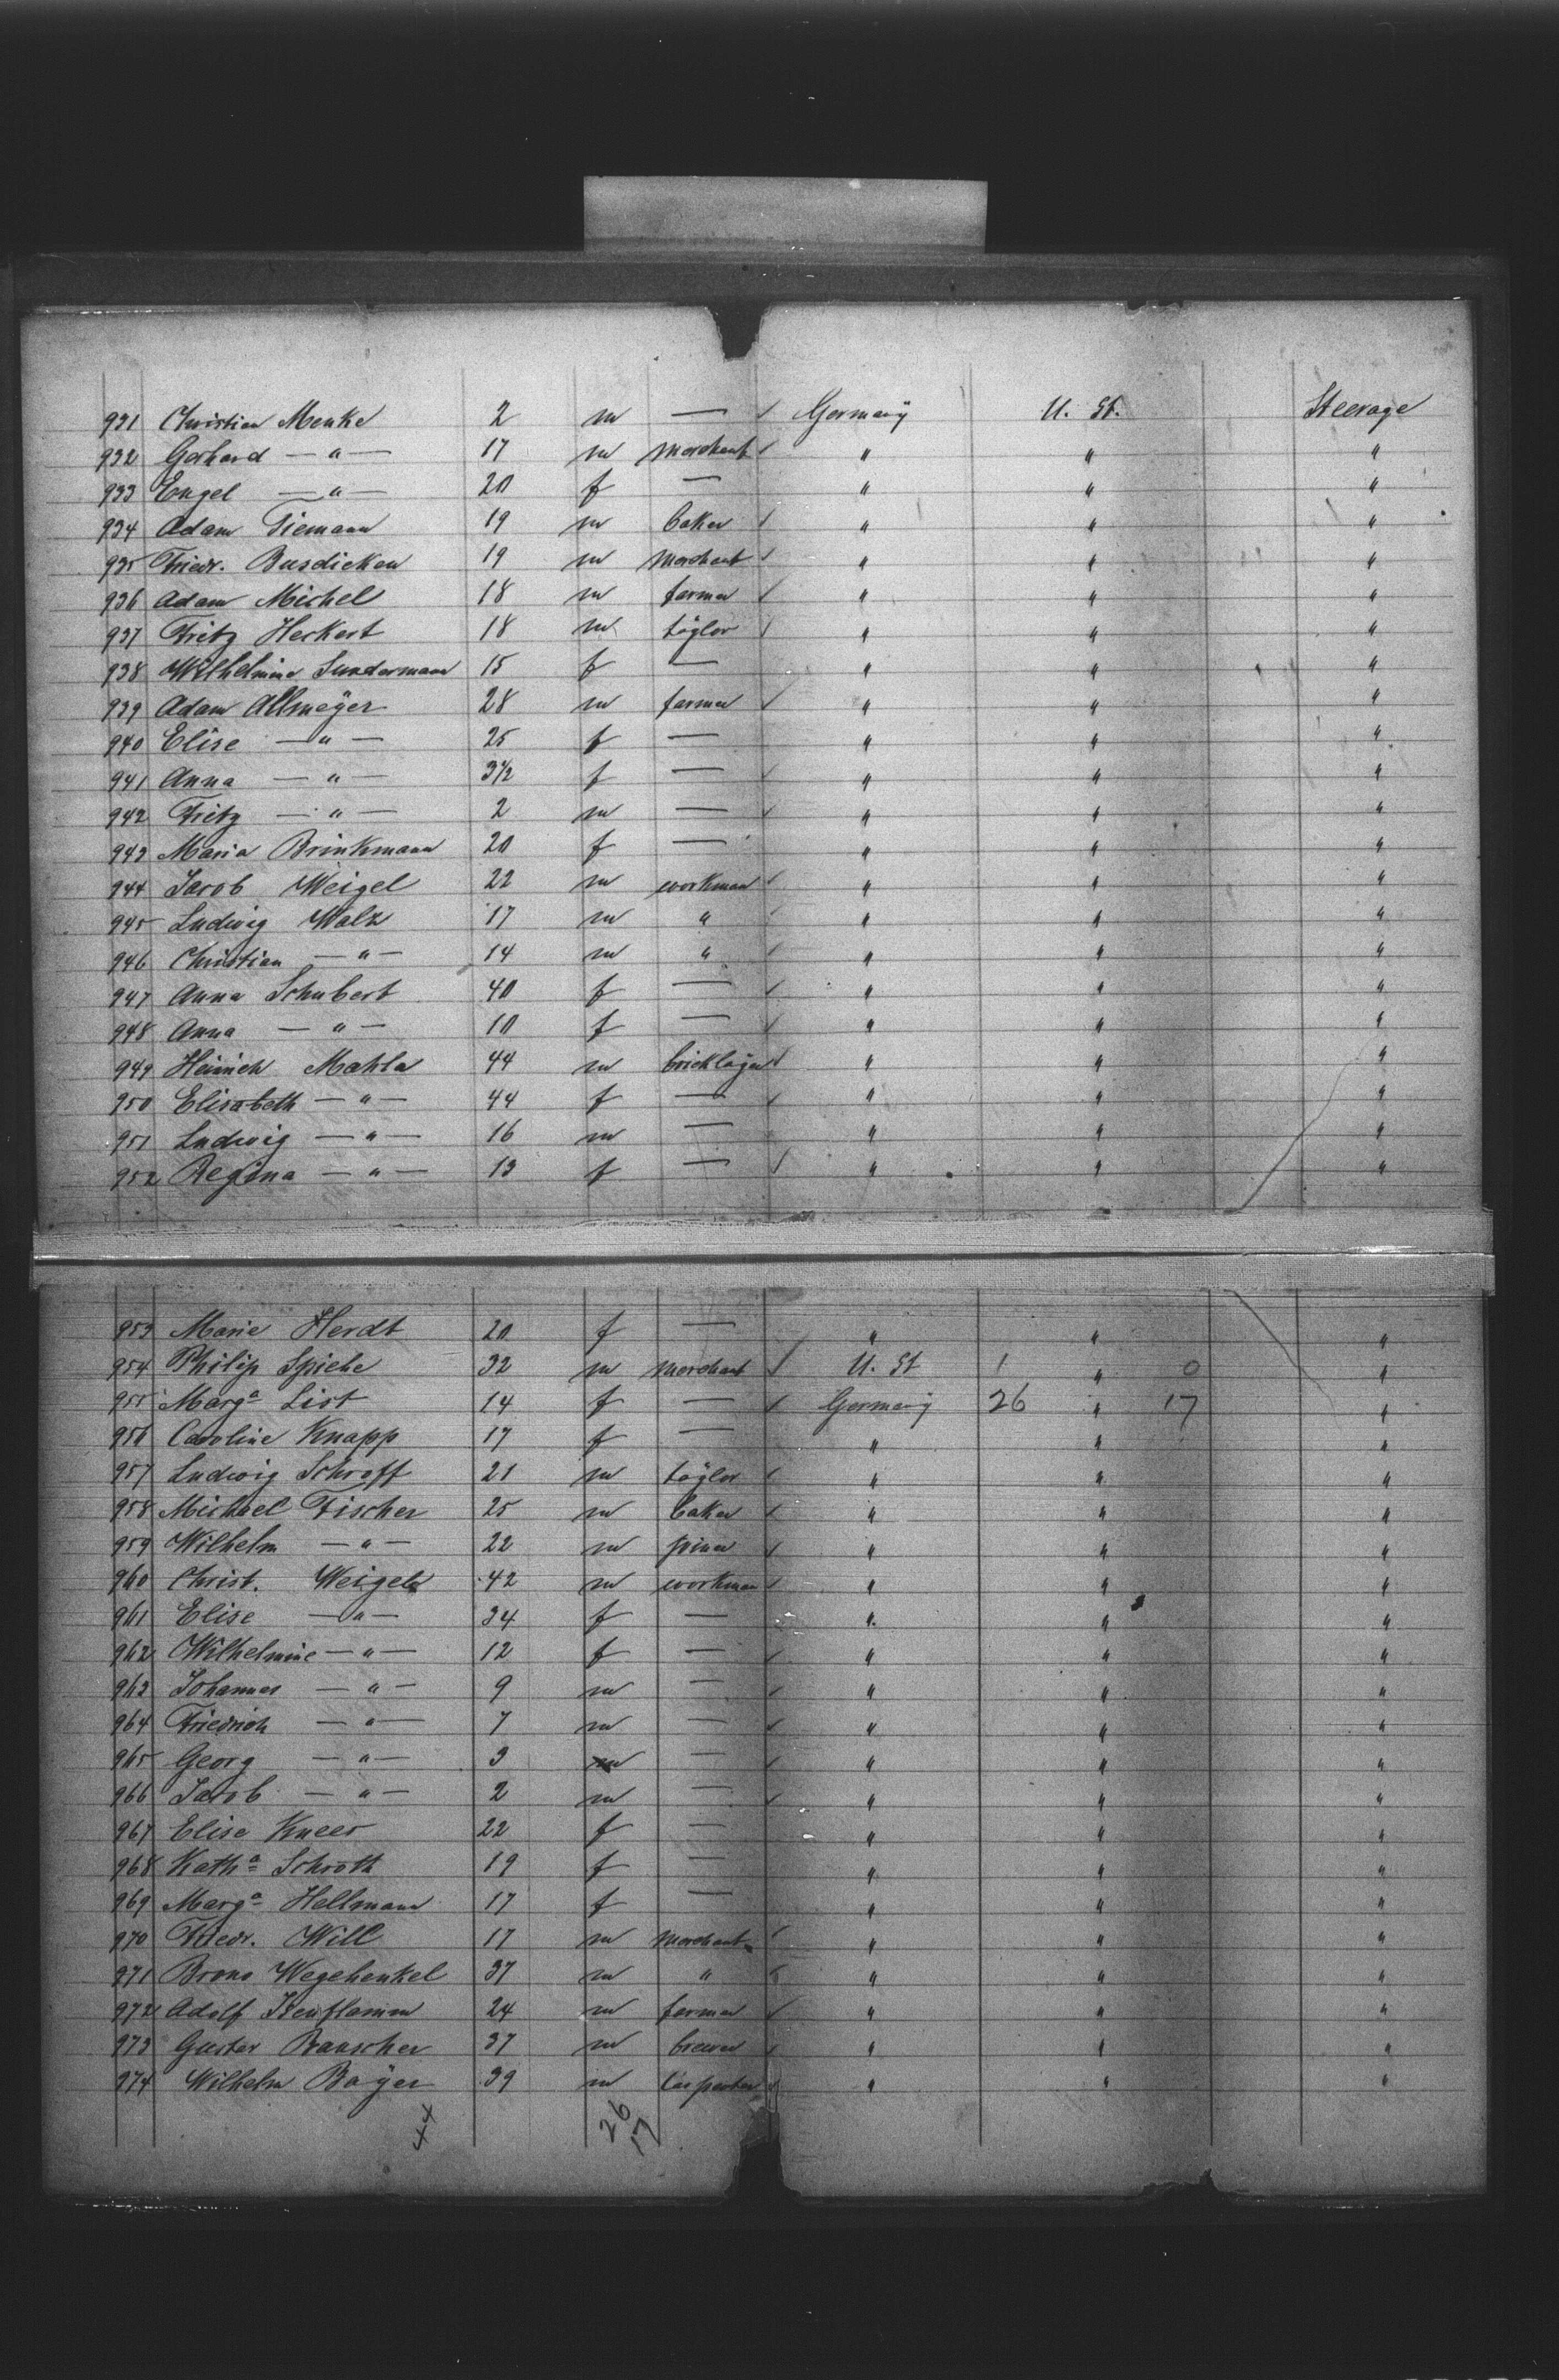 931 Christian Menke 2 m — Germany U. St. Steerage
932 Gerhard — " — 17 m merchant " " "
933 Engel — " — 20 f — " " "
934 Adam Tiemann 19 m baker " " "
935 Friedr. Busdieken 19 m merchant " " "
936 Adam Michel 18 m farmer " " "
937 Fritz Herkert 18 m taylor " " "
938 Wilhelmine Sundermann 15 f — " " "
939 Adam Allmeyer 28 m farmer " " "
940 Elise — " — 25 f — " " "
941 Anna — " — 3½ f — " " "
942 Fritz — " — 2 m — " " "
943 Maria Brinkmann 20 f — " " "
944 Jacob Weigel 22 m workman " " "
945 Ludwig Walz 17 m " " " "
946 Christian — " — 14 m " " " "
947 Anna Schubert 40 f — " " "
948 Anna — " — 10 f — " " "
949 Heinrich Mahla 44 m bricklayer " " "
950 Elisabeth — " — 44 f — " " "
951 Ludwig — " — 16 m — " " "
952 Regina — " — 13 f — " " "
953 Marie Herdt 20 f — " " "
954 Philip Spiehe 32 m merchant U. St 1 " 0 "
955 Marga List 14 f — Germany 26 " 17 "
956 Caroline Knapp 17 f — " " "
957 Ludwig Schroff 21 m taylor " " "
958 Michael Fischer 25 m baker " " "
959 Wilhelm — " — 22 m joiner " " "
960 Christ. Weigel 42 m workman " " "
961 Elise — " — 34 f — " " "
962 Wilhelmine — " — 12 f — " " "
963 Johannes — " — 9 m — " " "
964 Friedrich — " — 7 m — " " "
965 Georg — " — 3 m — " " "
966 Jacob — " — 2 m — " " "
967 Elise Kneer 22 f — " " "
968 Katha Schroth 19 f — " " "
969 Marga Hellmann 17 f — " " "
970 Friedr. Will 17 m merchant " " "
971 Bruno Wegehenkel 37 m " " " "
972 Adolf Isenflamm 24 m farmer " " "
973 Gustav Rauscher 37 m brewer " " "
974 Wilhelm Bayer 39 m carpenter " " "
44 26
17